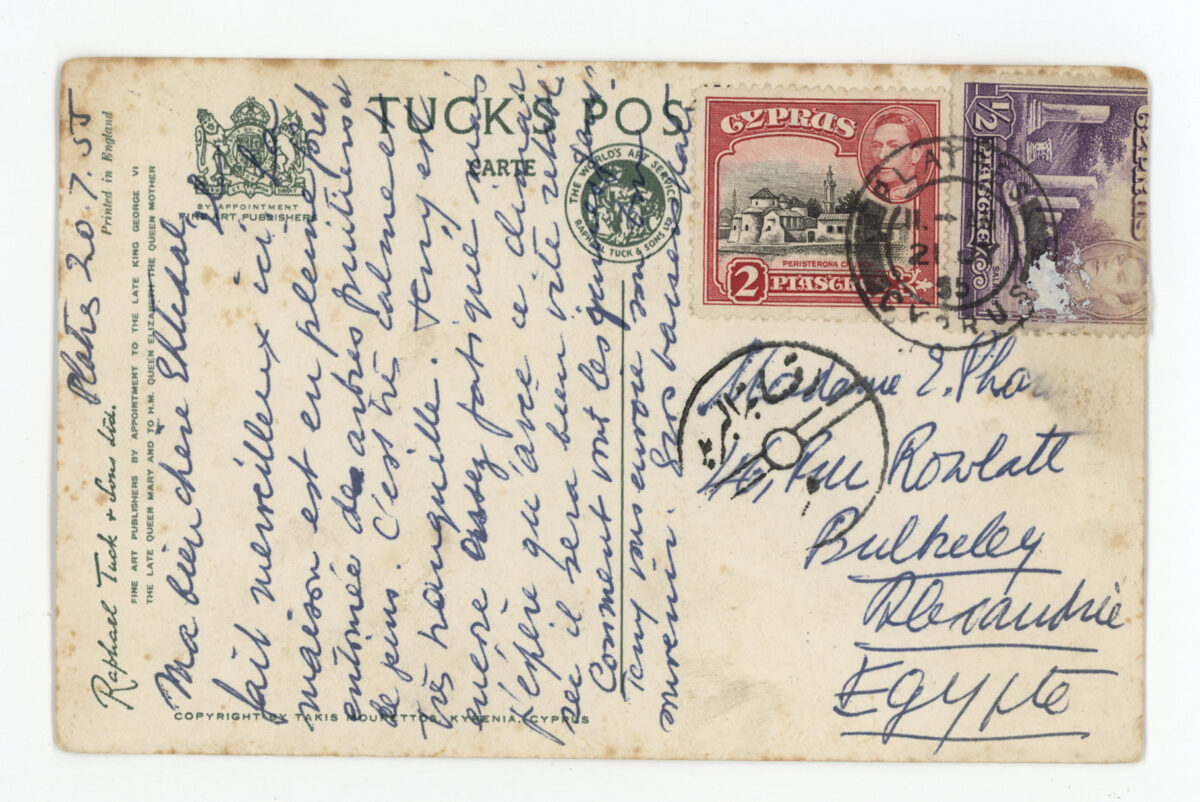 TUCK'S POS
CARTE
BY APPOINTMENT
FINE ART PUBLISHERS
THE WORLD'S ART SERVICE
RAPHAEL TUCK & SONS LTD
Raphael Tuck & Sons Ltd.
Printed in England
FINE ART PUBLISHERS BY APPOINTMENT TO THE LATE KING GEORGE VI
THE LATE QUEEN MARY AND TO H.M. QUEEN ELIZABETH THE QUEEN MOTHER
COPYRIGHT BY TAKIS MOURETTOS, KYRENIA, CYPRUS
Platres 20.7.55
Ma bien chère
Il fait
fait merveilleux ici la
maison est en pleine forêt
entourée de arbres fruitiers et
de pins. C'est très calme et
très tranquille. Tony est
encore assez fatigué mais
j'espère qu'avec ce climat
sec il sera bien vite rétabli
Comment vont les
Tony vous envoie son bon
souvenir. Gros baisers
CYPRUS
PERISTERONA
2 PIASTRES
CYPRUS
½ PIASTRE
PLATRES
21
55
CYPRUS
رقابة البريد
Madame E.
16, Rue Rowlatt
Bulkeley
Alexandrie
Egypte